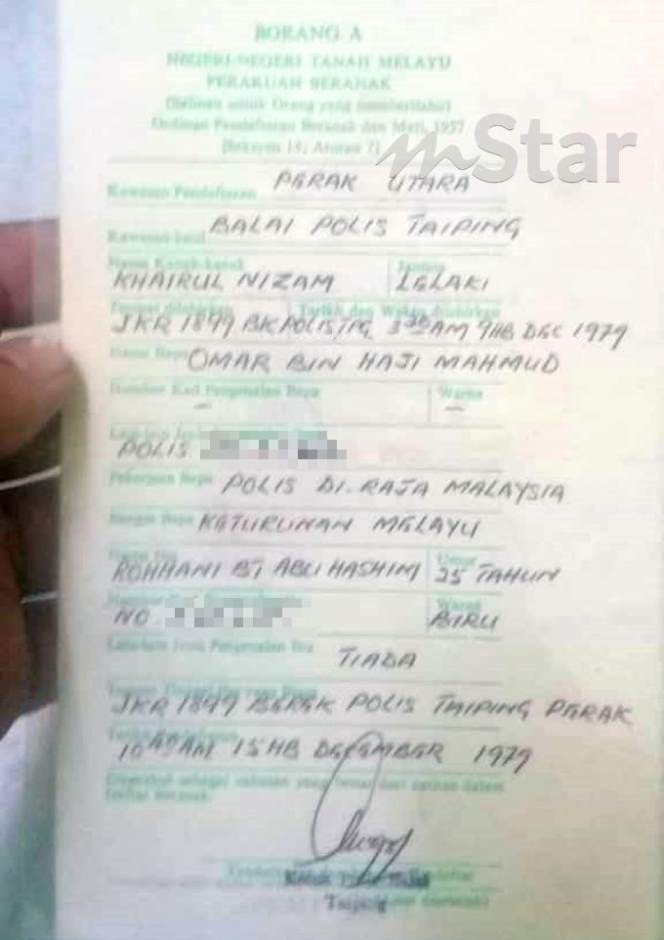 BORANG A
NEGERI-NEGERI TANAH MELAYU
PERAKUAN BERANAK
(Salinan untuk Orang yang memberitahu)
Ordinan Pendaftaran Beranak dan Mati, 1957
mStar
Kawasan Pendaftaran PERAK UTARA
Kawasan kecil BALAI POLIS TAIPING
Nama Kanak-kanak Jantina
KHAIRUL NIZAM LELAKI
Tempat dilahirkan Tarikh dan Waktu dilahirkan
JKR 1849 BK POLIS TPG 3 30 AM 9HB DEC 1979
Nama Bapa OMAR BIN HAJI MAHMUD
Nombor Kad Pengenalan Bapa Warna
— —
POLIS
Pekerjaan Bapa POLIS DI-RAJA MALAYSIA
Bangsa Bapa KETURUNAN MELAYU
Nama Ibu Umur
ROHHANI BT ABU HASHIM 25 TAHUN
Warna
NO BIRU
Lain-lain Jenis Pengenalan Ibu
TIADA
JKR 1849 BEREK POLIS TAIPING PERAK
10 45 AM 15HB DECEMBER 1979
daftar Beranak.
Taiping